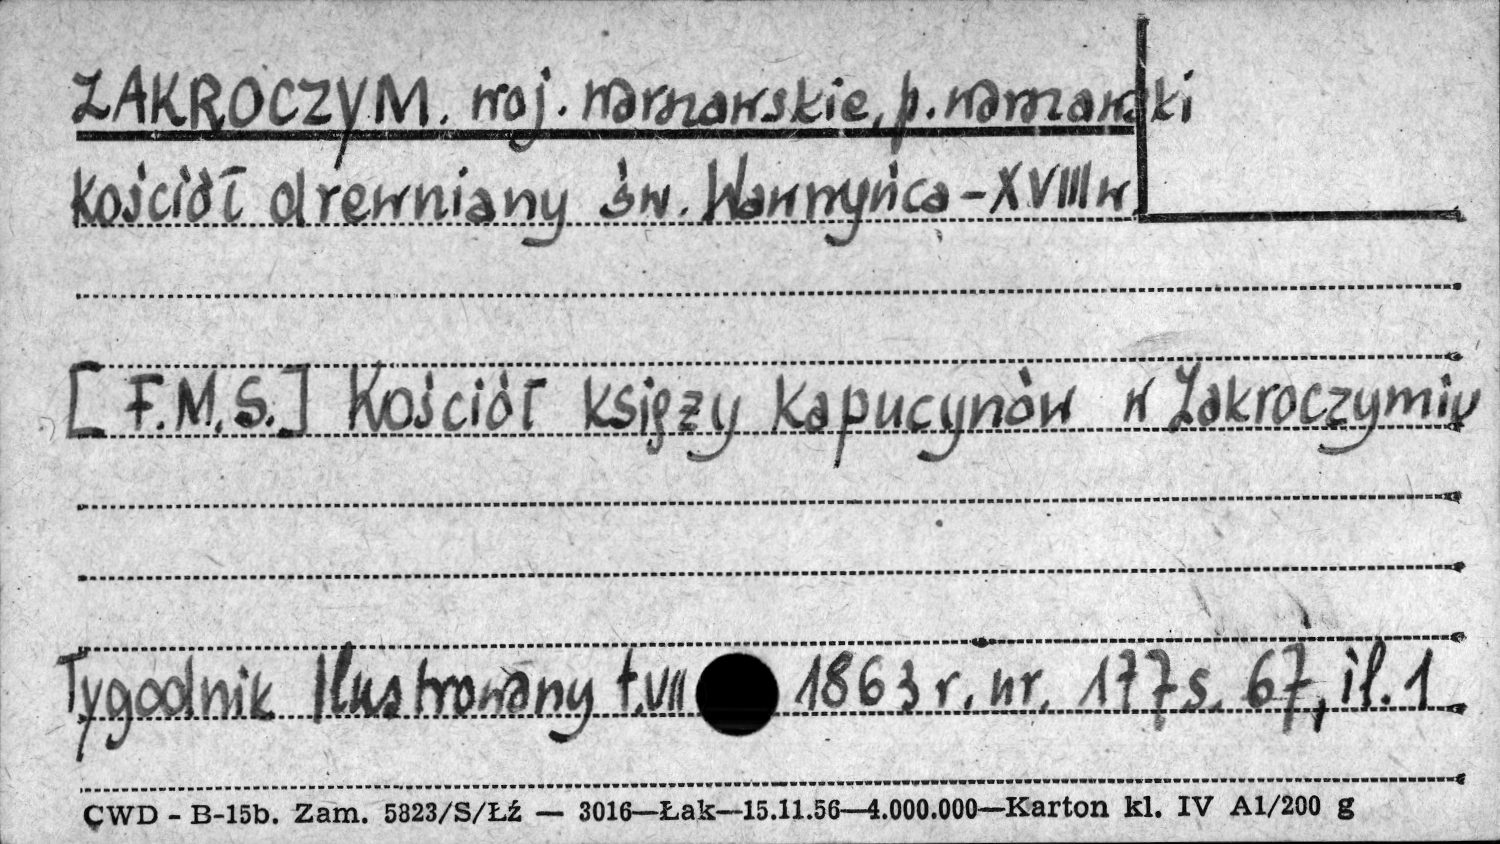 ZAKROCZYM. woj. warszawskie, p. warszawski
kościół drewniany św. Wawrzyńca - XVIII w
[F.M.S.] Kościół księży kapucynów w Zakroczymiu
Tygodnik Ilustrowany t.VII 1863 r. nr. 177 s. 67, il. 1
CWD - B-15b. Zam. 5823/S/Łź — 3016—Łak—15.11.56—4.000.000—Karton kl. IV A1/200 g